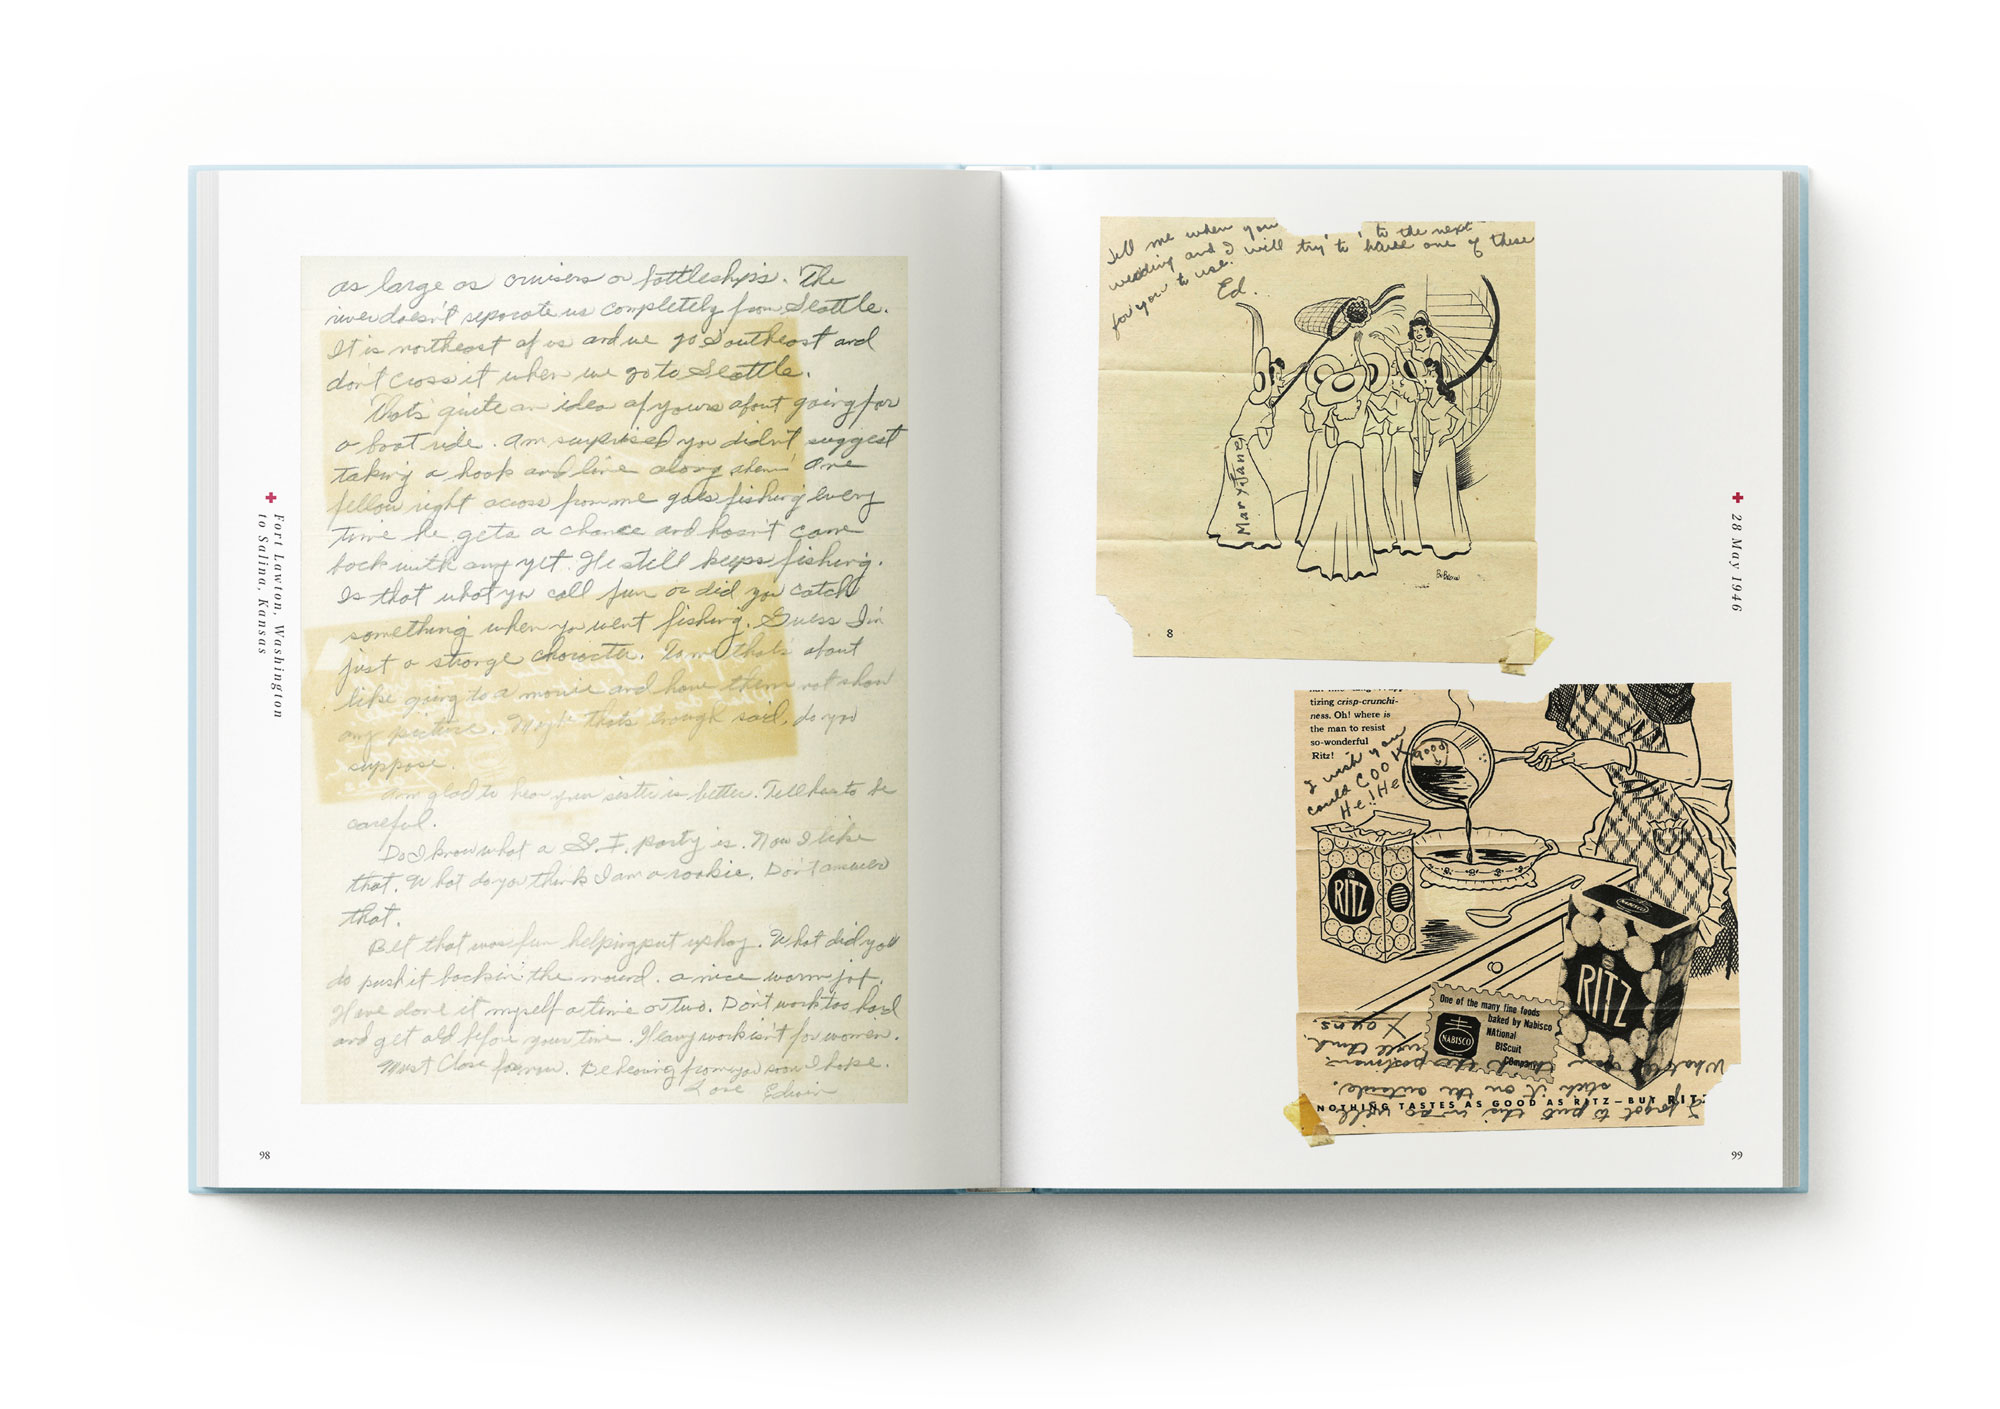 as large as cruisers or battleships. The
river doesn't seperate us completely from Seattle.
It is northeast of us and we go Southeast and
don't cross it when we go to Seattle.
Thats quite an idea of yours about going for
a boat ride. Am surprised you didn't suggest
taking a hook and line along
One
fellow right across from me goes fishing every
time he gets a chance and hasn't come
back with any yet. He still keeps fishing.
Is that what you call fun or did you catch
something when you went fishing. Guess I'm
just a strange character. To me that's about
like going to a movie and have them not show
any picture. Maybe thats enough said, do you
suppose.
Am glad to hear your sister is better. Tell her to be
careful.
Do I know what a party is. Now I like
that. What do you think I am a rookie. Don't answer
that.
Bet that was fun helping put up hay. What did you
do push it back in the mound. a nice warm job.
Have done it myself a time or two. Don't work too hard
and get old before your time. Heavy work isn't for women.
Must Close for now. Be hearing from you soon I hope.
Love Edwin
Fort Lawton, Washington
to Salina, Kansas
98
Tell me when you to the next
wedding and I will try to have one of these
for you to use.
Ed.
Mary Jane
8
28 May 1946
tizing crisp-crunchi-
ness. Oh! where is
the man to resist
so-wonderful
Ritz!
I wish you
could COOK good
He! He!
RITZ
NABISCO
RITZ
One of the many fine foods
baked by Nabisco
NAtional
BIScuit
COmpany
NABISCO
NOTHING TASTES AS GOOD AS RITZ—BUT RITZ
I forgot to put this in as will
stick it on the outside.
What do you think the postman
will think.
Yours.
99